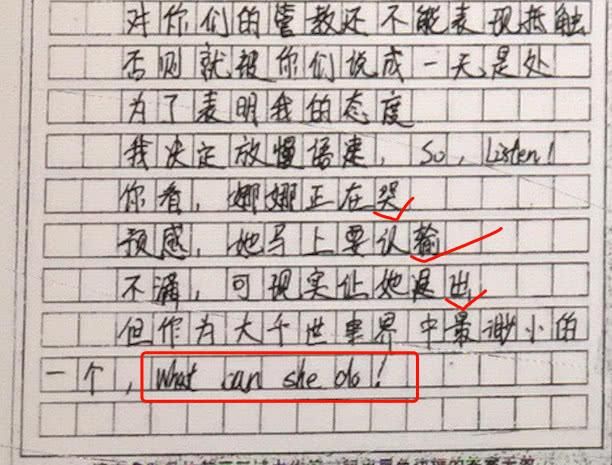 对你们的管教还不能表现抵触
否则就被你们说成一天是处
为了表明我的态度
我决定放慢语速，So，Listen！
你看，娜娜正在哭
预感，她马上要认输
不满，可现实让她退出
但作为大千世界中最渺小的
一个，What can she do！